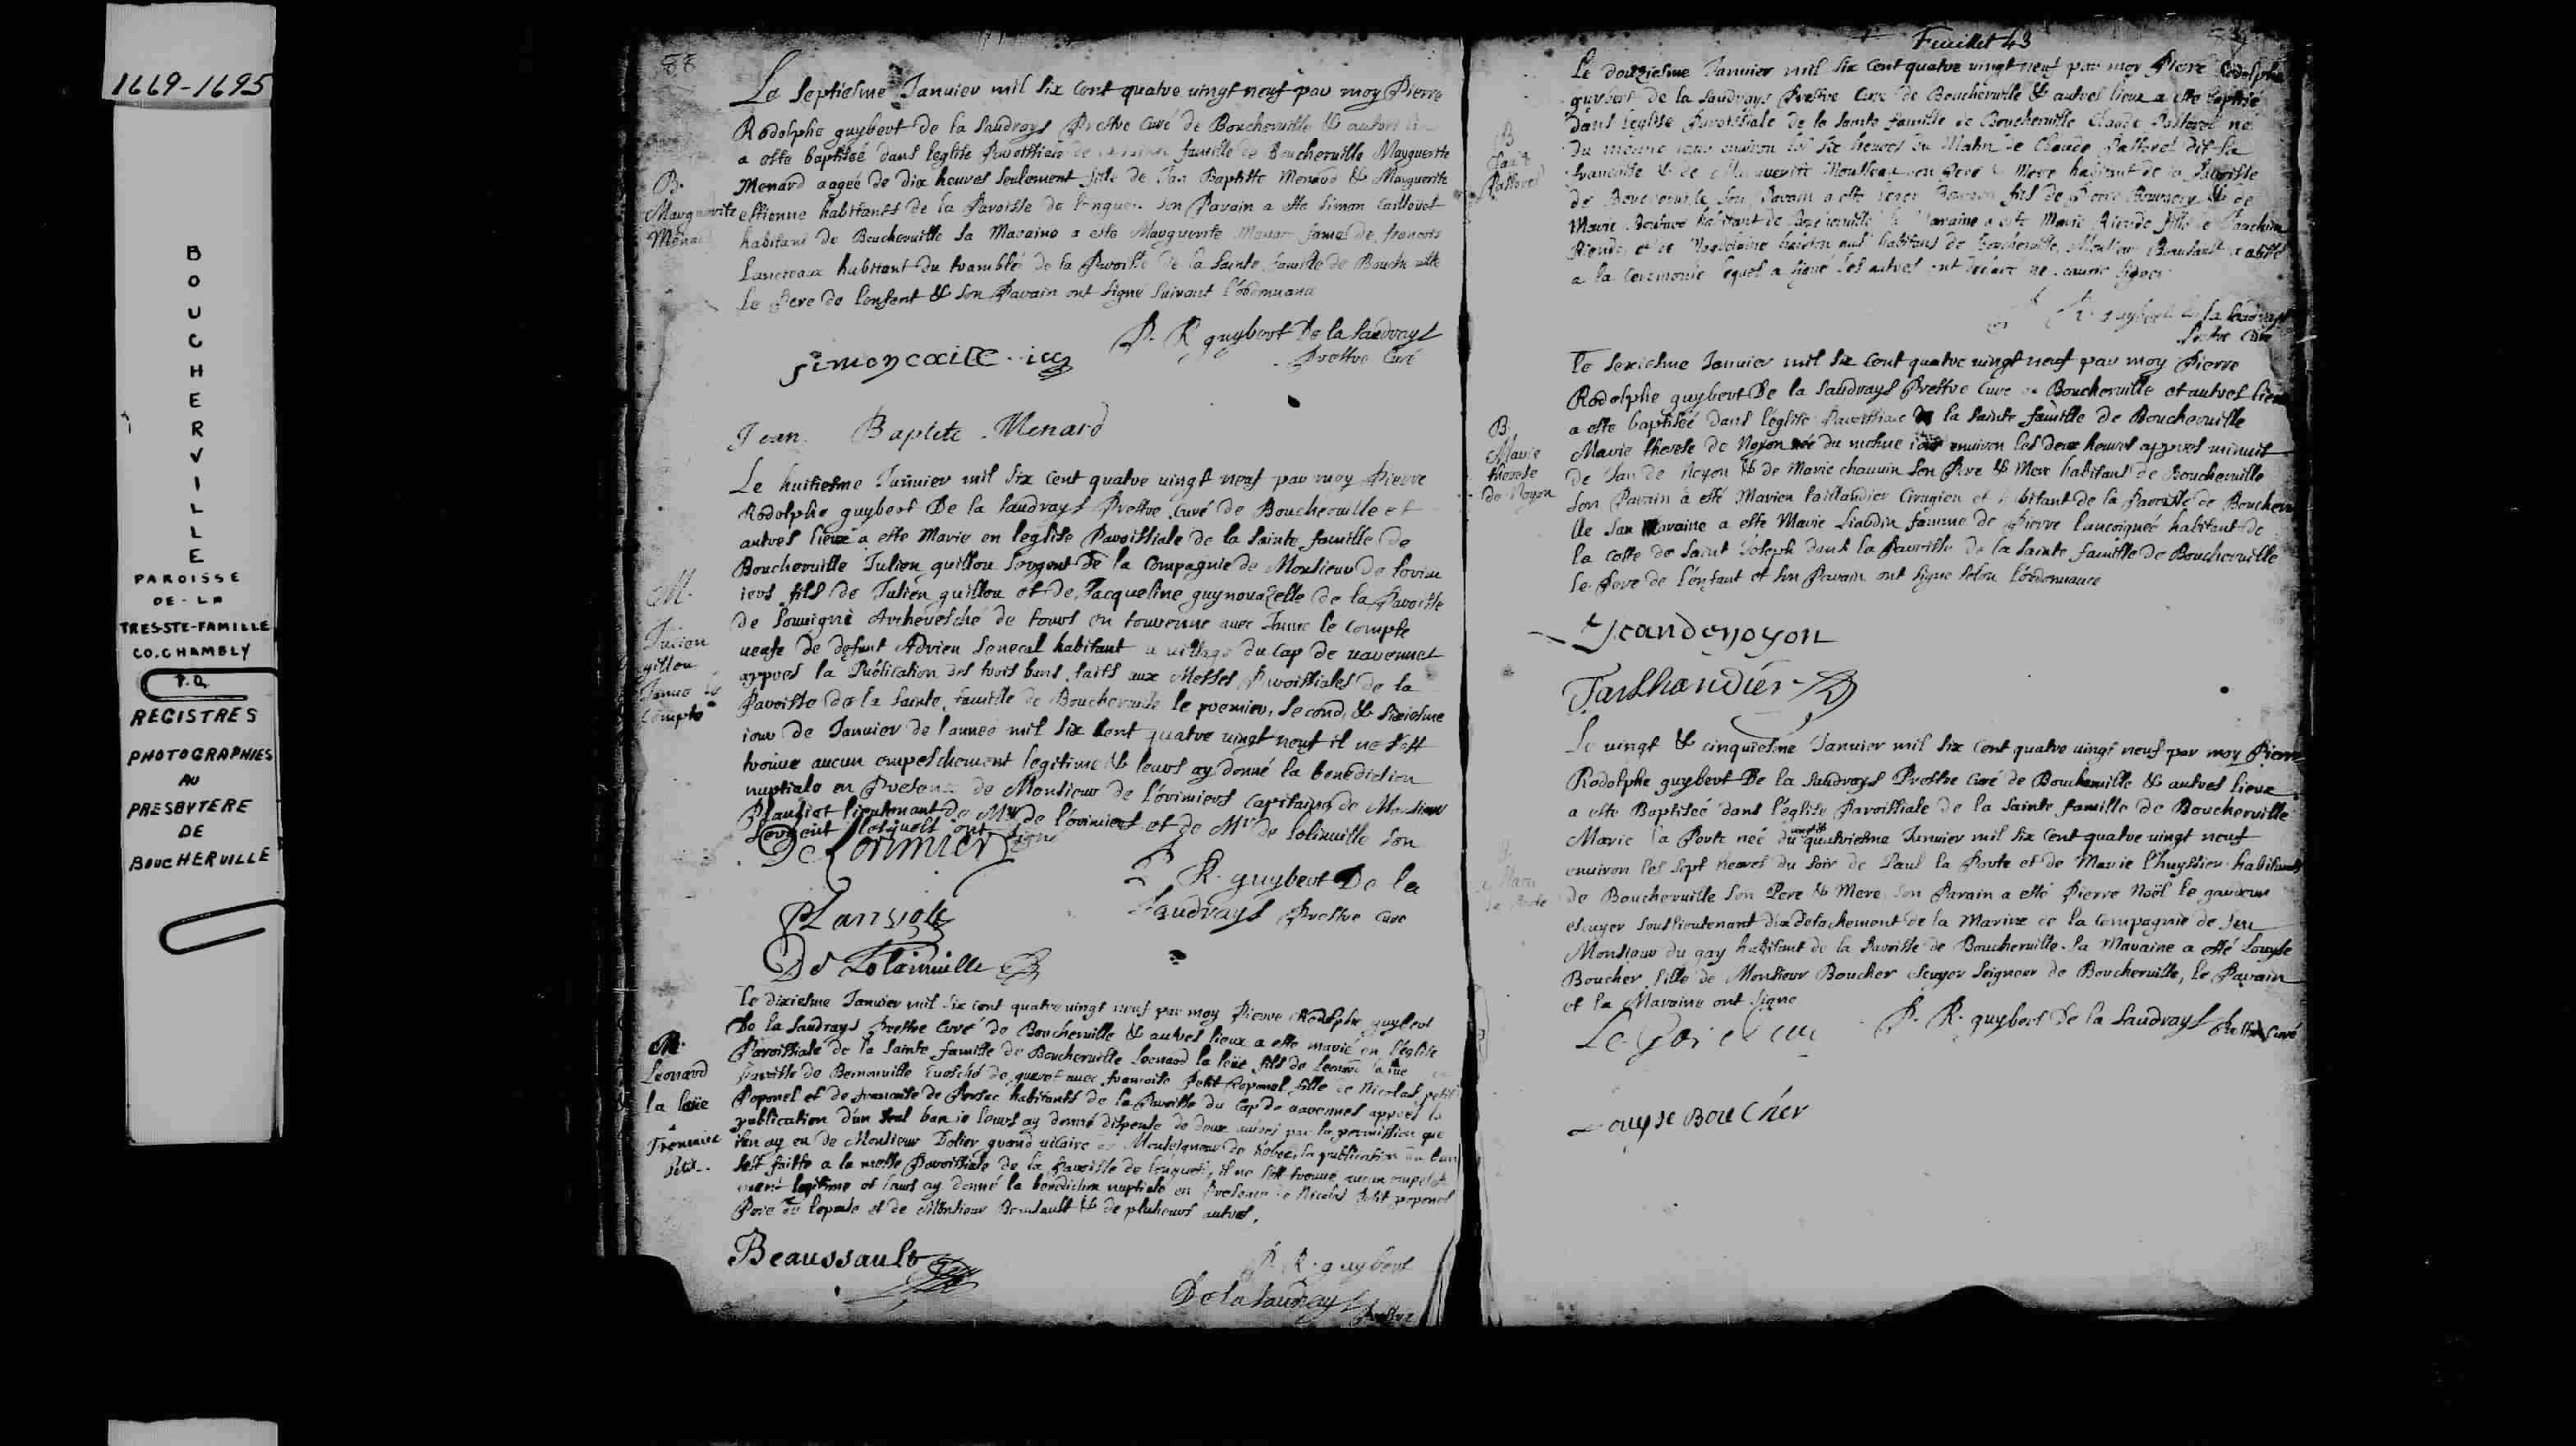 1669-1695
BOUCHERVILLE
PAROISSE
DE-LA
TRES-STE-FAMILLE
CO. CHAMBLY
P.Q.
REGISTRES
PHOTOGRAPHIES
AU
PRESBYTERE
DE
BOUCHERVILLE
88
Le septiesme Januier mil six cent quatre uingt neuf par moy Pierre
Rodolphe guybert de la Saudrays Prestre Curé de Boucheruille & autres
a esté baptisée dans leglise Paroissiale de famille de Boucheruille Marguerite
Menard aageé de dix heures seulement fille de Jan Baptiste Menard & Marguerite
estienne habitants de la Paroisse de son Parain a esté Simon Caillouet
habitant de Boucheruille sa Maraine a esté Marguerite femme de francois
Lancreaux habitant du tramblé de la Paroisse de la sainte famille de Boucheruille
le Pere de lenfant & son Parain ont signé suiuant l'ordonnance
B.
Marguerite
Menard
P. R guybert De la Saudrays
Prestre Curé
Jean Baptiste Menard
Le huitiesme Januier mil six cent quatre uingt neuf par moy Pierre
Rodolphe guybert De la Saudrays Prestre Curé de Boucheruille et
autres lieux a esté Marié en leglise Paroissiale de la sainte famille de
Boucheruille Julien guillou sergent de la Compagnie de Monsieur de lorim
iers fils de Julien guillou et de Jacqueline de la Paroisse
de Souuigné Archeuesché de tours en tourenne auec Jeanne le Compte
ueufe de defunt Adrien Senecal habitant village du Cap de uarennes
appres la Publication des trois bans faits aux Messes Paroissiales de la
Paroisse de la sainte famille de Boucheruille le premier, second & sixiesme
iour de Januier de l'année mil six cent quatre uingt neuf il ne s'est
trouué aucun empeschement legitime & leurs ay donné la benediction
nuptiale en de Monsieur de l'orimiers Capitaine de Monsieur
Plangiot lieutenant de Mr de l'orimiers et de Mr de Lolinuille son
sergent lesquels ont signé
M.
Julien
gillou
Janne le
Compte
De Lorimier
P R. guybert De la
Saudrays Prestre Curé
Le dixiesme Januier mil six cent quatre uingt neuf par moy Pierre Rodolphe guybert
De la Saudrays Prestre Curé de Boucheruille & autres lieux a esté marié en l'église
Paroissiale de la sainte famille de Boucheruille Leonard la fils de Leonard
Paroisse de Euesché de auec francoise Petit Poponel fille de Nicolas petit
Poponel et de francoise de habitants de la Paroisse du Cap de uarennes appres la
publication d'un seul ban ie leurs ay donné dispense de deux autres par la permission que
i'en ay eu de Monsieur Dolier grand uicaire de Monseigneur de la publication du ban
s'est faitte a la messe Paroissiale de la Paroisse de il ne s'est trouué aucun
legitime et leurs ay donné la benediction nuptiale en Presence de Nicolas Petit poponel
Pere de l'epouse et de Monsieur Beausault & de plusieurs autres.
M.
Leonard
Beaussault
P. R. guybert
De la Saudrays Prestre
Feuillet 43
Le douziesme Januier mil six cent quatre uingt neuf par moy Pierre Rodolphe
guybert de la Saudrays Prestre Curé de Boucheruille & autres lieux a esté baptisé
dans leglise Paroissiale de la sainte famille de Boucheruille Claude Pastorel né
du mesme iour enuiron les six heures du Matin de Claude Pastorel dit la
francoise & de Marguerite son Pere & Mere habitant de la Paroisse
de Boucheruille son Parain a esté fils de Pierre & de
Marie habitant de Boucheruille la Maraine a esté Marie fille de
et de habitans de Boucheruille, Monsieur Bausault a assisté
a la Ceremonie lequel a signé les autres ont declaré ne scauoir signer
B
Pastorel
Le seziesme Januier mil six cent quatre uingt neuf par moy Pierre
Rodolphe guybert De la Saudrays Prestre Curé de Boucheruille et autres lieux
a esté baptisée dans l'église Paroissiale la sainte famille de Boucheruille
Marie therese de Noyon née du mesme enuiron les deux heures appres minuit
de Jan de Noyon & de Marie chauuin son Pere & Mere habitans de Boucheruille
son Parain a esté Marien taillandier Cirugien et habitant de la Paroisse de Boucherui
lle sa Maraine a esté Marie femme de Pierre habitant de
la Coste de saint Joseph dans la Paroisse de la sainte famille de Boucheruille
le Pere de l'enfant et son Parain ont signé selon l'ordonnance
B.
Marie
therese
de Noyon
Jean denoyon
Tailhandier
Le uingt & cinquiesme Januier mil six cent quatre uingt neuf par moy Pierre
Rodolphe guybert De la Saudrays Prestre Curé de Boucheruille & autres lieux
a esté Baptiseé dans l'église Paroissiale de la sainte famille de Boucheruille
Marie la Porte neé du quatriesme Januier mil six cent quatre uingt neuf
enuiron les sept heures du soir de Paul la Porte et de Marie habitants
de Boucheruille son Pere & Mere son Parain a esté Pierre Noël le gardeur
escuyer souslieutenant du detachement de la Marine de la Compagnie de feu
Monsieur du gay habitant de la Paroisse de Boucheruille la Maraine a esté Louyse
Boucher fille de Monsieur Boucher escuyer seigneur de Boucheruille, le Parain
et la Maraine ont signé
P. R. guybert de la Saudrays Prestre Curé
Louyse Boucher